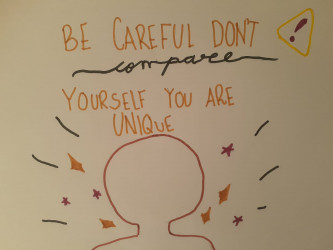 BE CAREFUL DON'T
compare
YOURSELF YOU ARE
UNIQUE